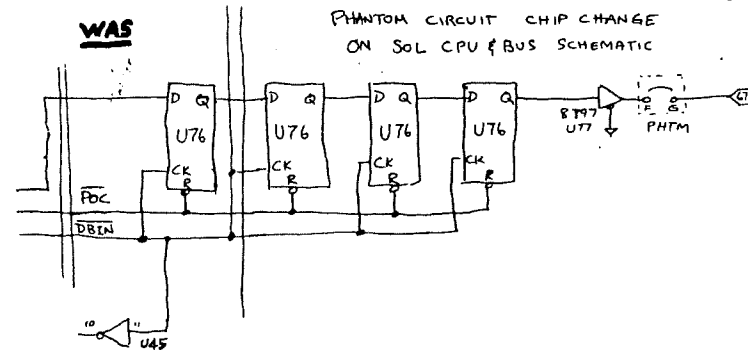 WAS
PHANTOM CIRCUIT CHIP CHANGE
ON SOL CPU & BUS SCHEMATIC
D Q
U76
CK
R
D Q
U76
CK
R
D Q
U76
CK
R
D Q
U76
CK
R
8T97
U77
F G
PHTM
67
POC
DBIN
"0" "
U45